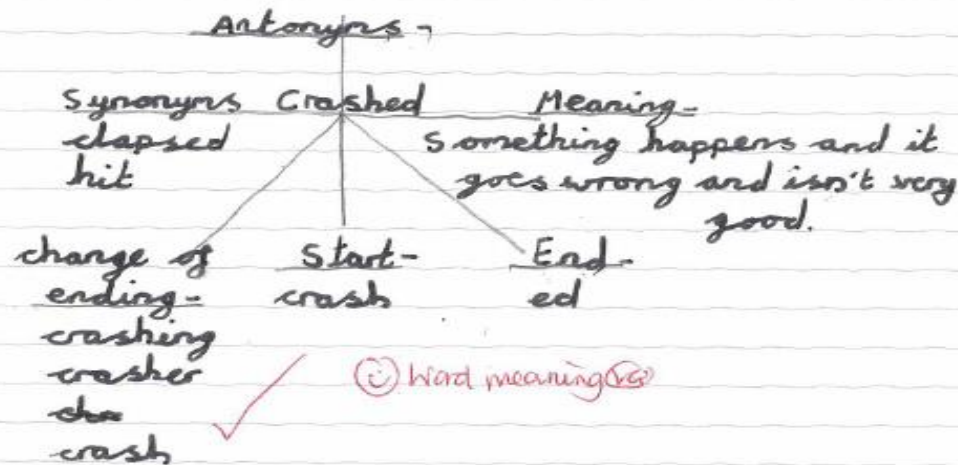 Antonyms -
Synonyms Crashed Meaning-
clapsed
hit
Something happens and it
goes wrong and isn't very
good.
change of
ending-
crashing
crasher
crash
Start-
crash
End-
ed
Word meaning